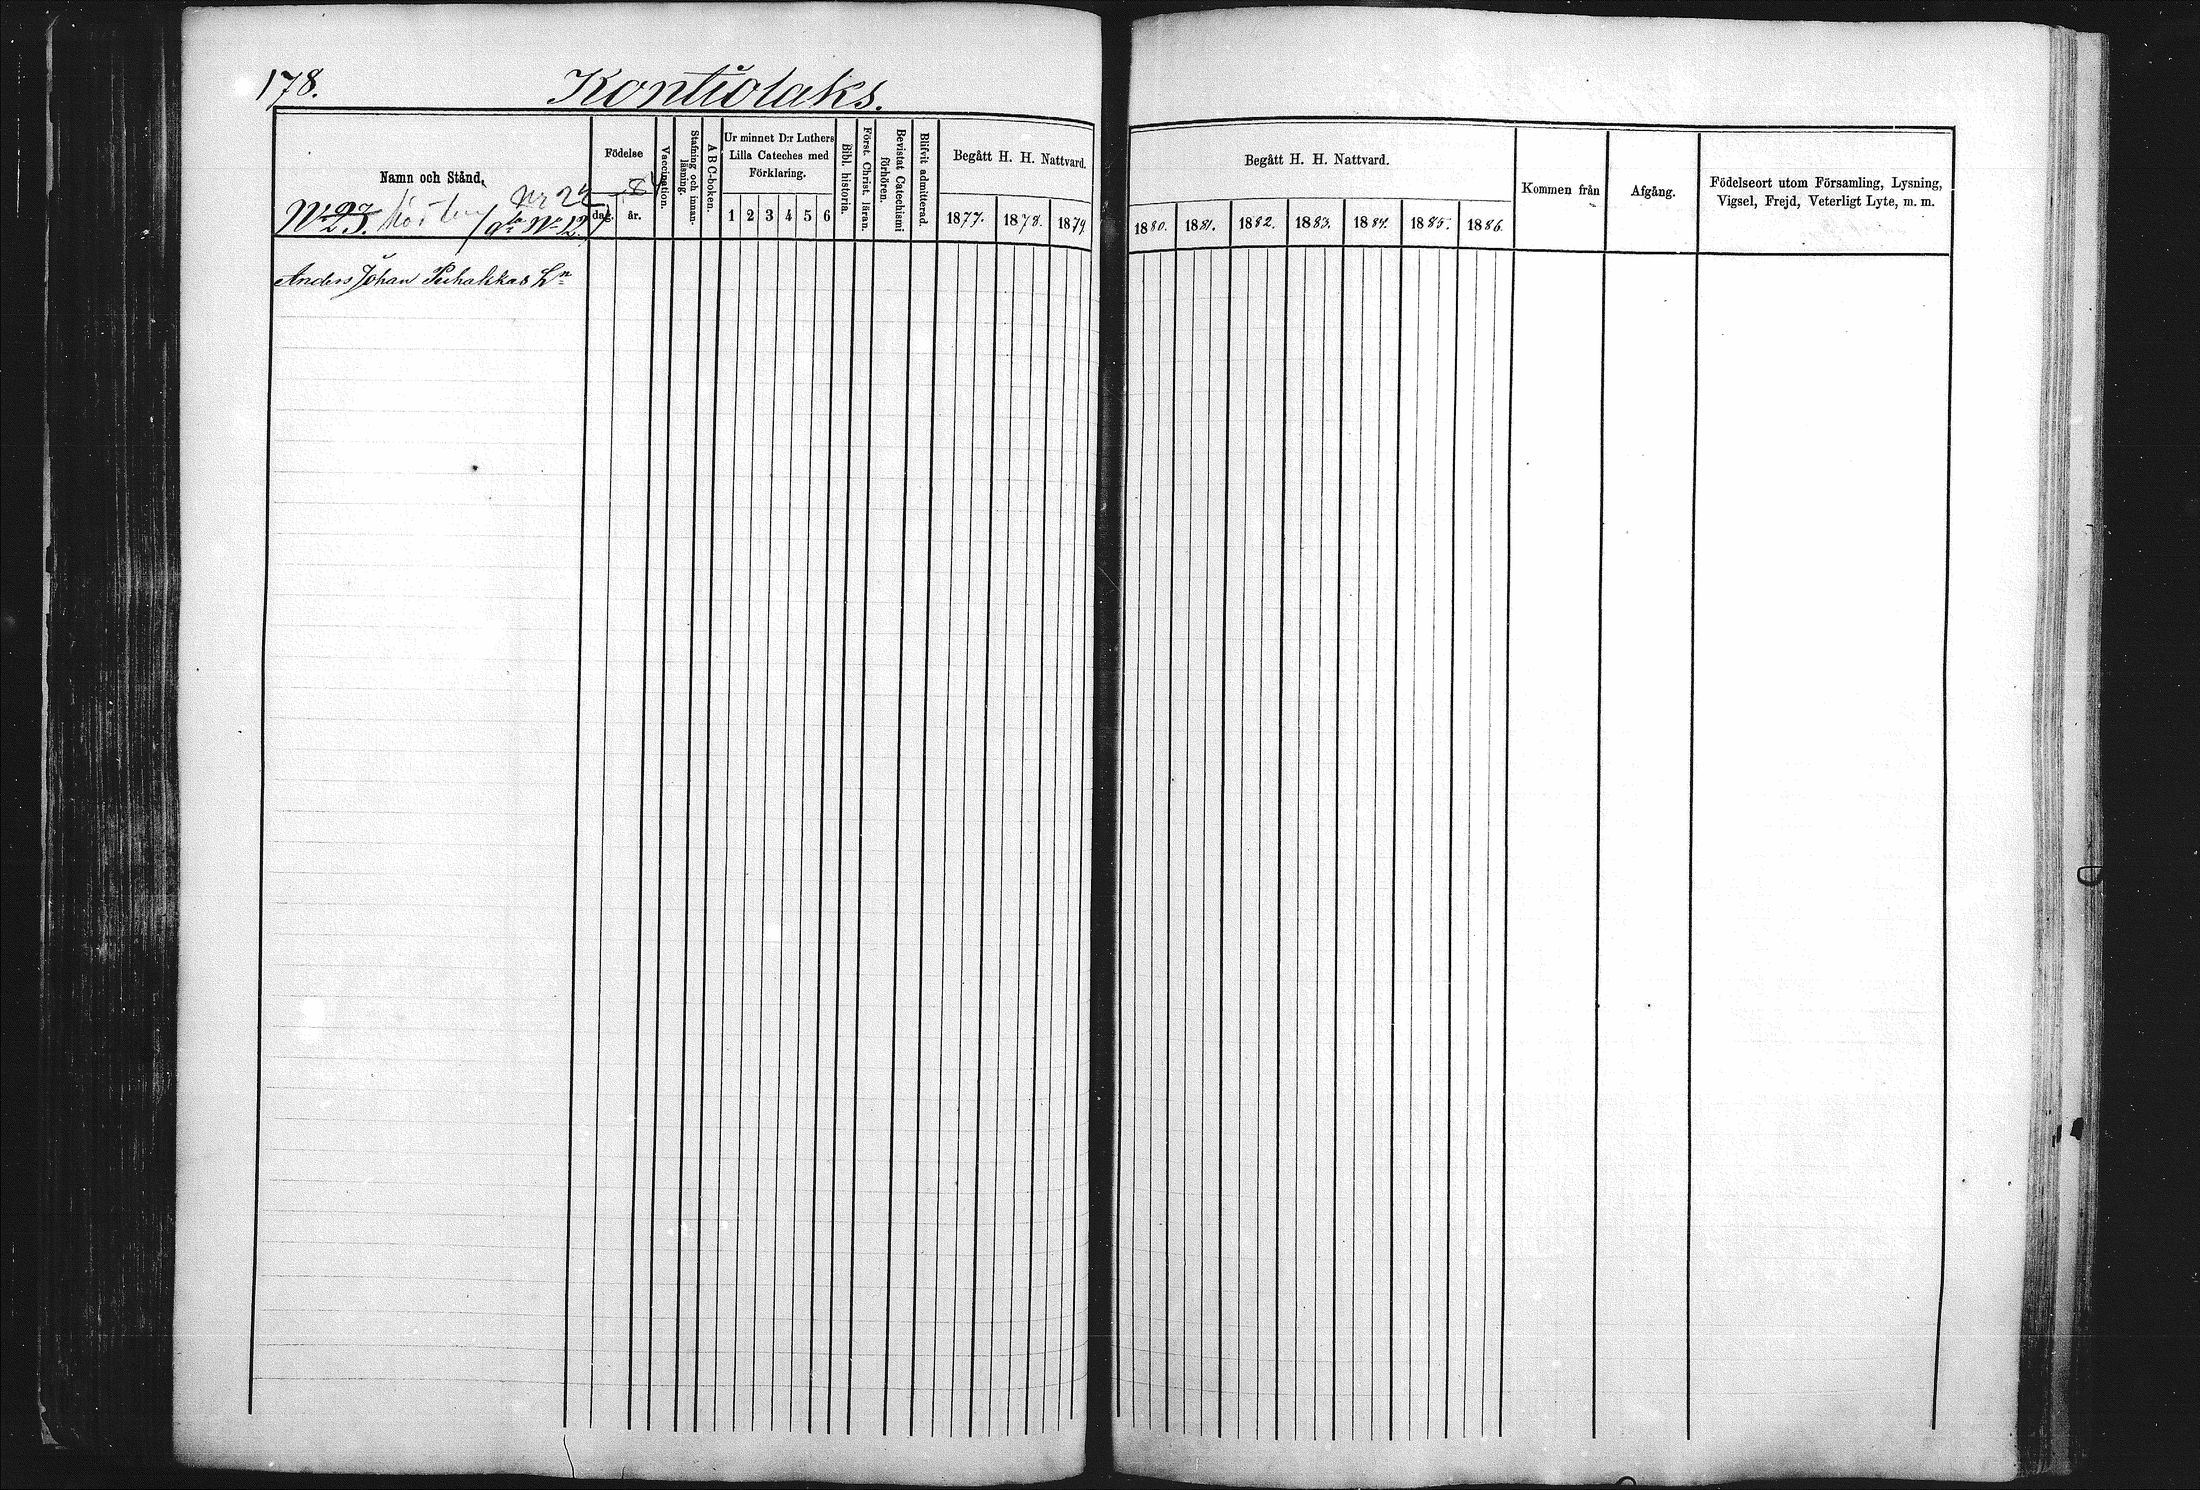 178.
Kontiolaks.
Namn och Stånd.
Födelse
dag.
år.
Vaccination.
Stafning och innan-läsning.
A B C-boken.
Ur minnet D:r Luthers
Lilla Cateches med
Förklaring.
1 2 3 4 5 6
Bibl. historia.
Först. Christ. läran.
Bevistat Catechismi förhören.
Blifvit admitterad.
Begått H. H. Nattvard.
1877. 1878. 1879.
Begått H. H. Nattvard.
1880. 1881. 1882. 1883. 1884. 1885. 1886.
Kommen från
Afgång.
Födelseort utom Församling, Lysning,
Vigsel, Frejd, Veterligt Lyte, m. m.
Nr 24
84
No 23.
No 12
Anders Johan